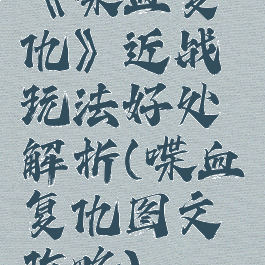 《喋血复
仇》近战
玩法好处
解析(喋血
复仇图文
攻略)